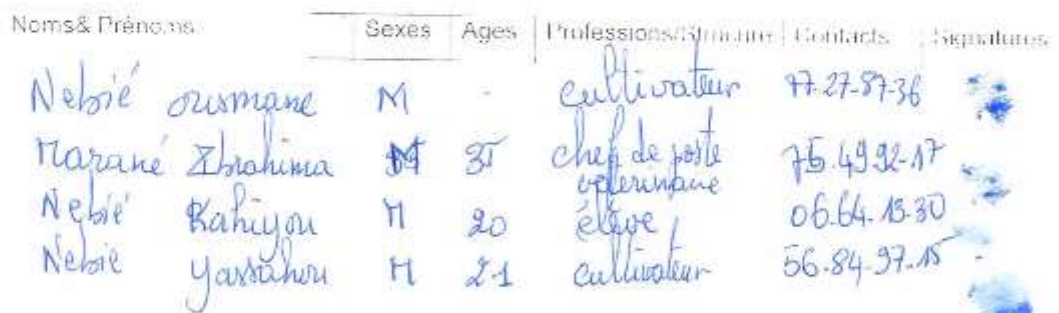 Noms& Prénoms Sexes Ages Professions/Structure Contacts Signatures
Nebié ousmane M - cultivateur 77-27-87-36
Marané Ibrahima M 35 chef de poste 75.49 92-17
veterinaire
Nebié Kahiyou M 20 élève 06.64.13.30
Nebié Yassahou M 21 cultivateur 56-84-97-15